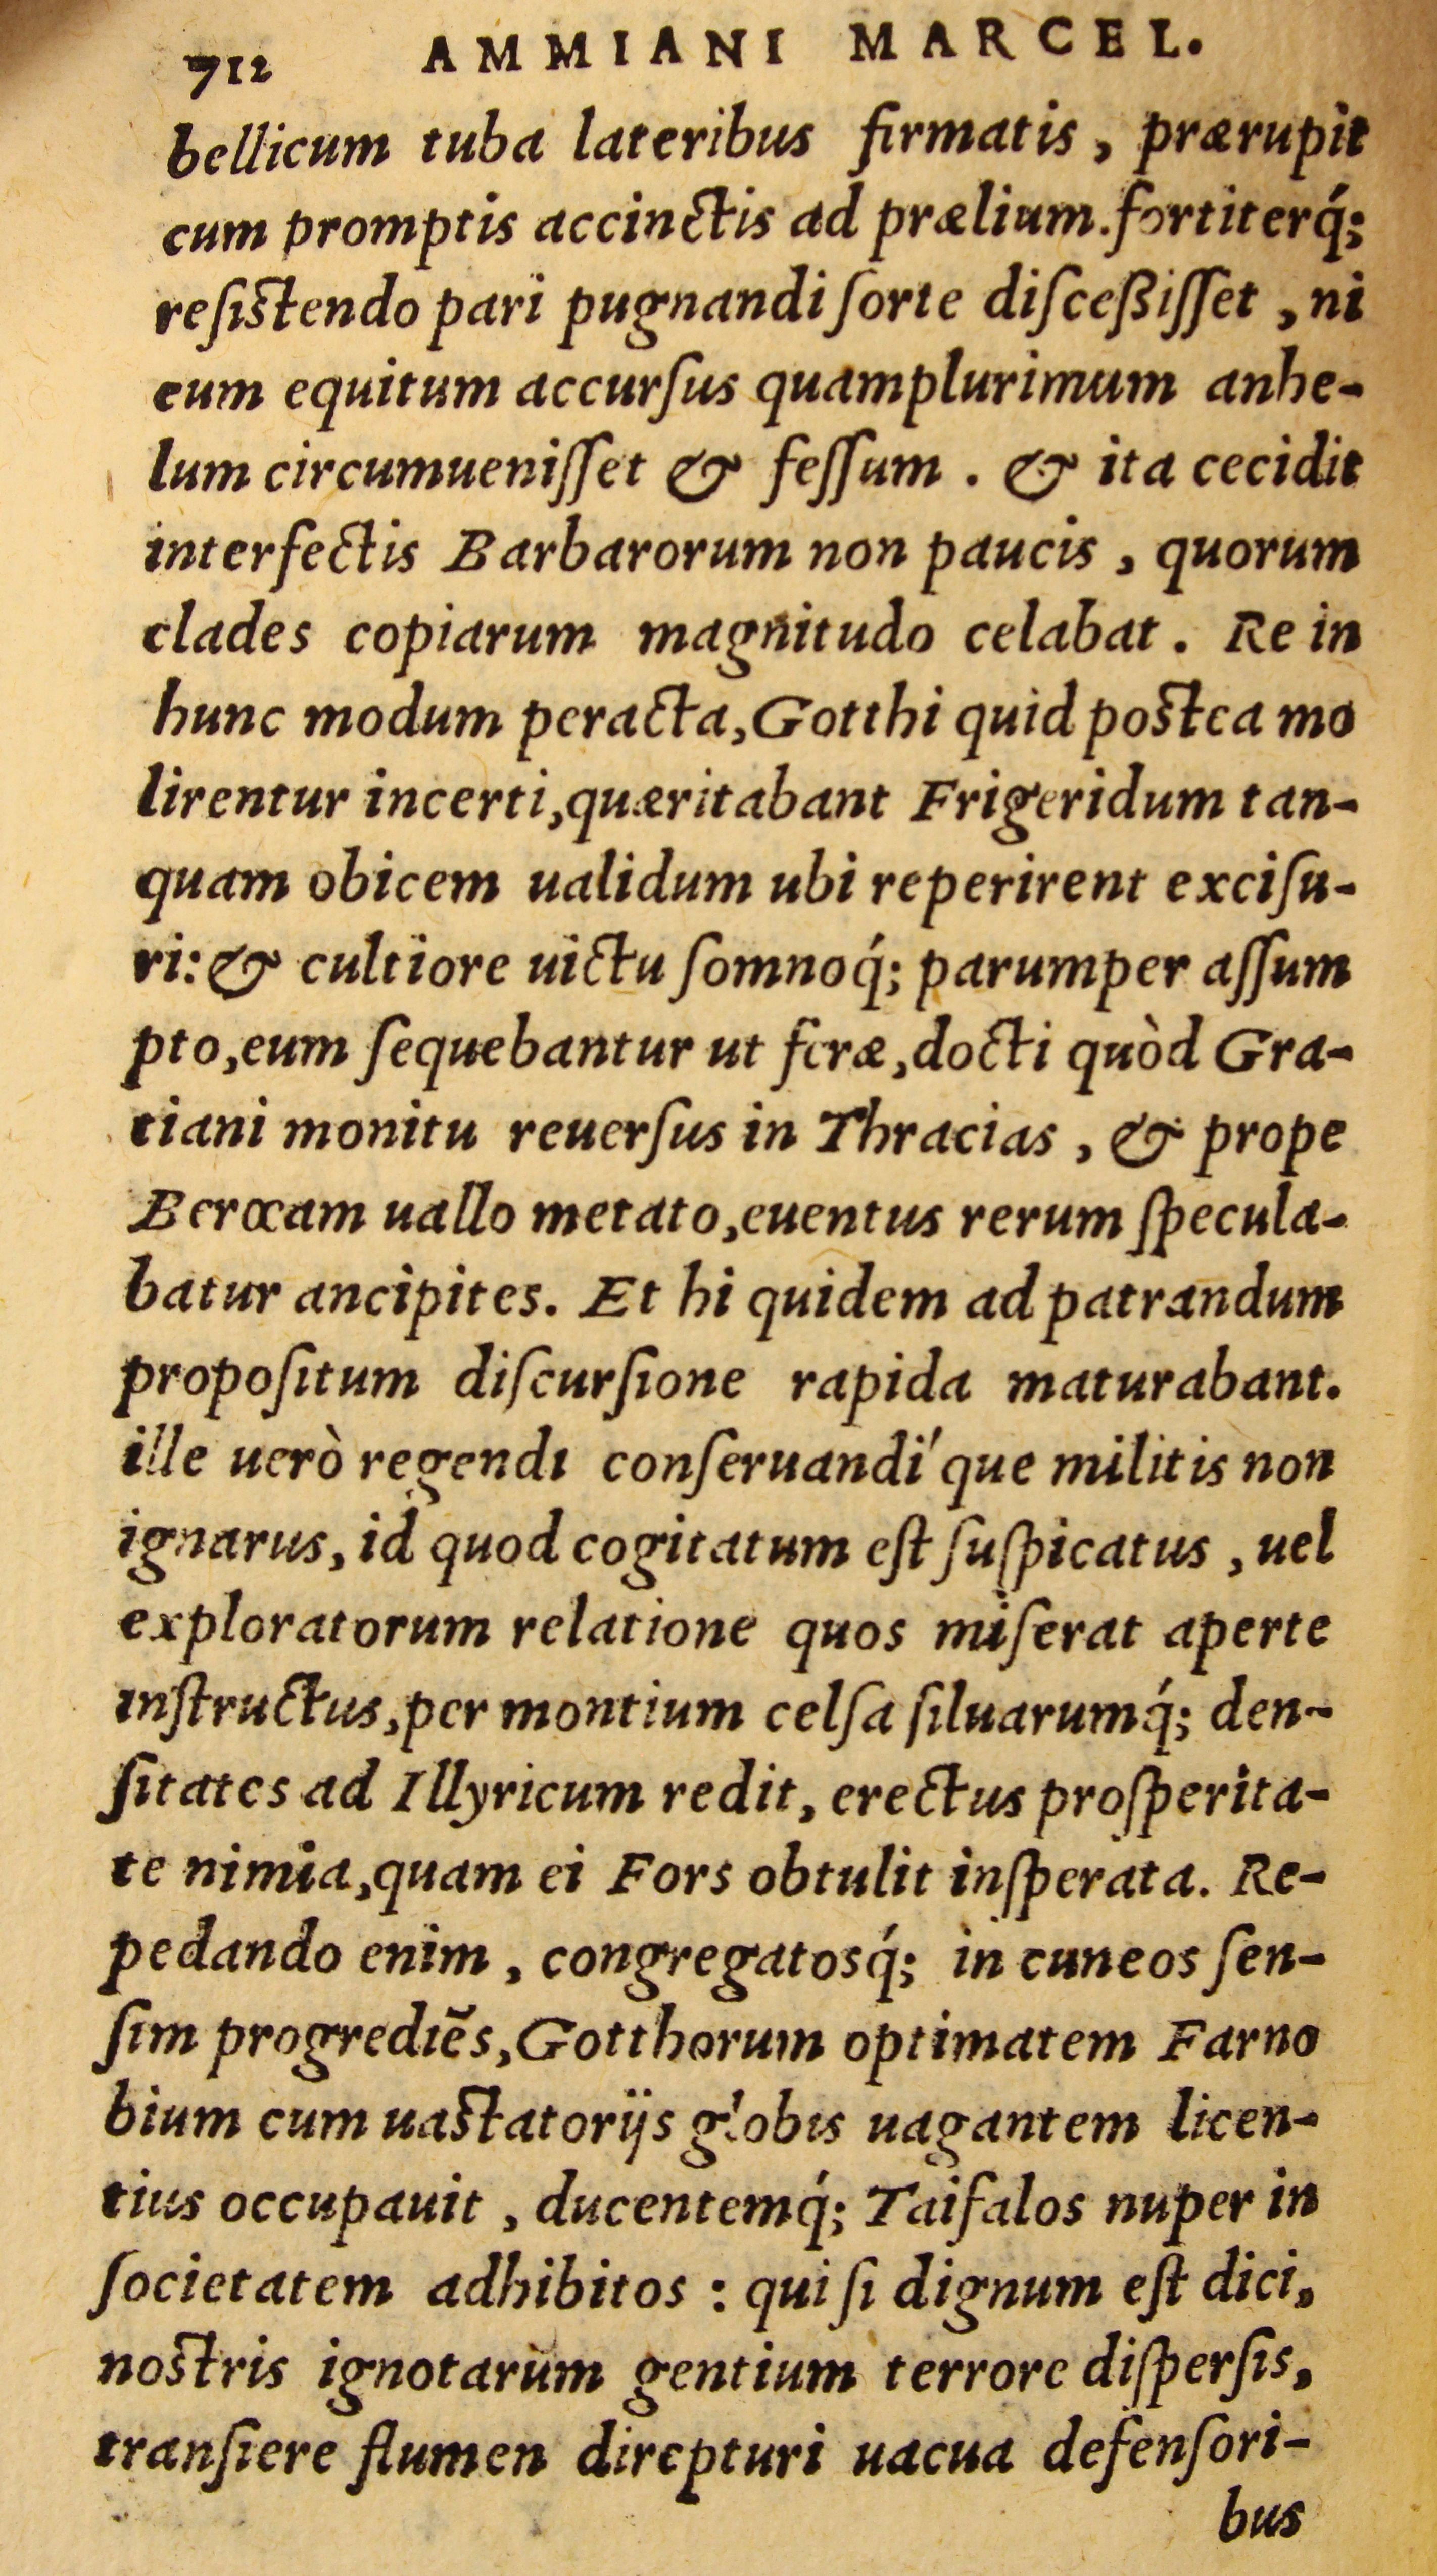 712 AMMIANI MARCEL.
bellicum tuba lateribus firmatis, prærupit
cum promptis accinctis ad prælium. fortiterq́;
reſiſtendo pari pugnandi ſorte diſceßiſſet, ni
eum equitum accurſus quamplurimum anhe-
lum circumueniſſet & feſſum. & ita cecidit
interfectis Barbarorum non paucis, quorum
clades copiarum magnitudo celabat. Re in
hunc modum peracta, Gotthi quid poſtea mo
lirentur incerti, quæritabant Frigeridum tan-
quam obicem ualidum ubi reperirent exciſu-
ri: & cultiore uictu ſomnoq́; parumper aſſum
pto, eum ſequebantur ut feræ, docti quòd Gra-
tiani monitu reuerſus in Thracias, & prope
Berœam uallo metato, euentus rerum ſpecula-
batur ancipites. Et hi quidem ad patrandum
propoſitum diſcurſione rapida maturabant.
ille uerò regendi conſeruandi'que militis non
ignarus, id quod cogitatum eſt ſuſpicatus, uel
exploratorum relatione quos miſerat aperte
inſtructus, per montium celſa ſiluarumq́; den-
ſitates ad Illyricum redit, erectus proſperita-
te nimia, quam ei Fors obtulit inſperata. Re-
pedando enim, congregatosq́; in cuneos ſen-
ſim progrediẽs, Gotthorum optimatem Farno
bium cum uaſtatorijs globis uagantem licen-
tius occupauit, ducentemq́; Taifalos nuper in
ſocietatem adhibitos: qui ſi dignum eſt dici,
noſtris ignotarum gentium terrore diſperſis,
tranſiere flumen direpturi uacua defenſori-
bus